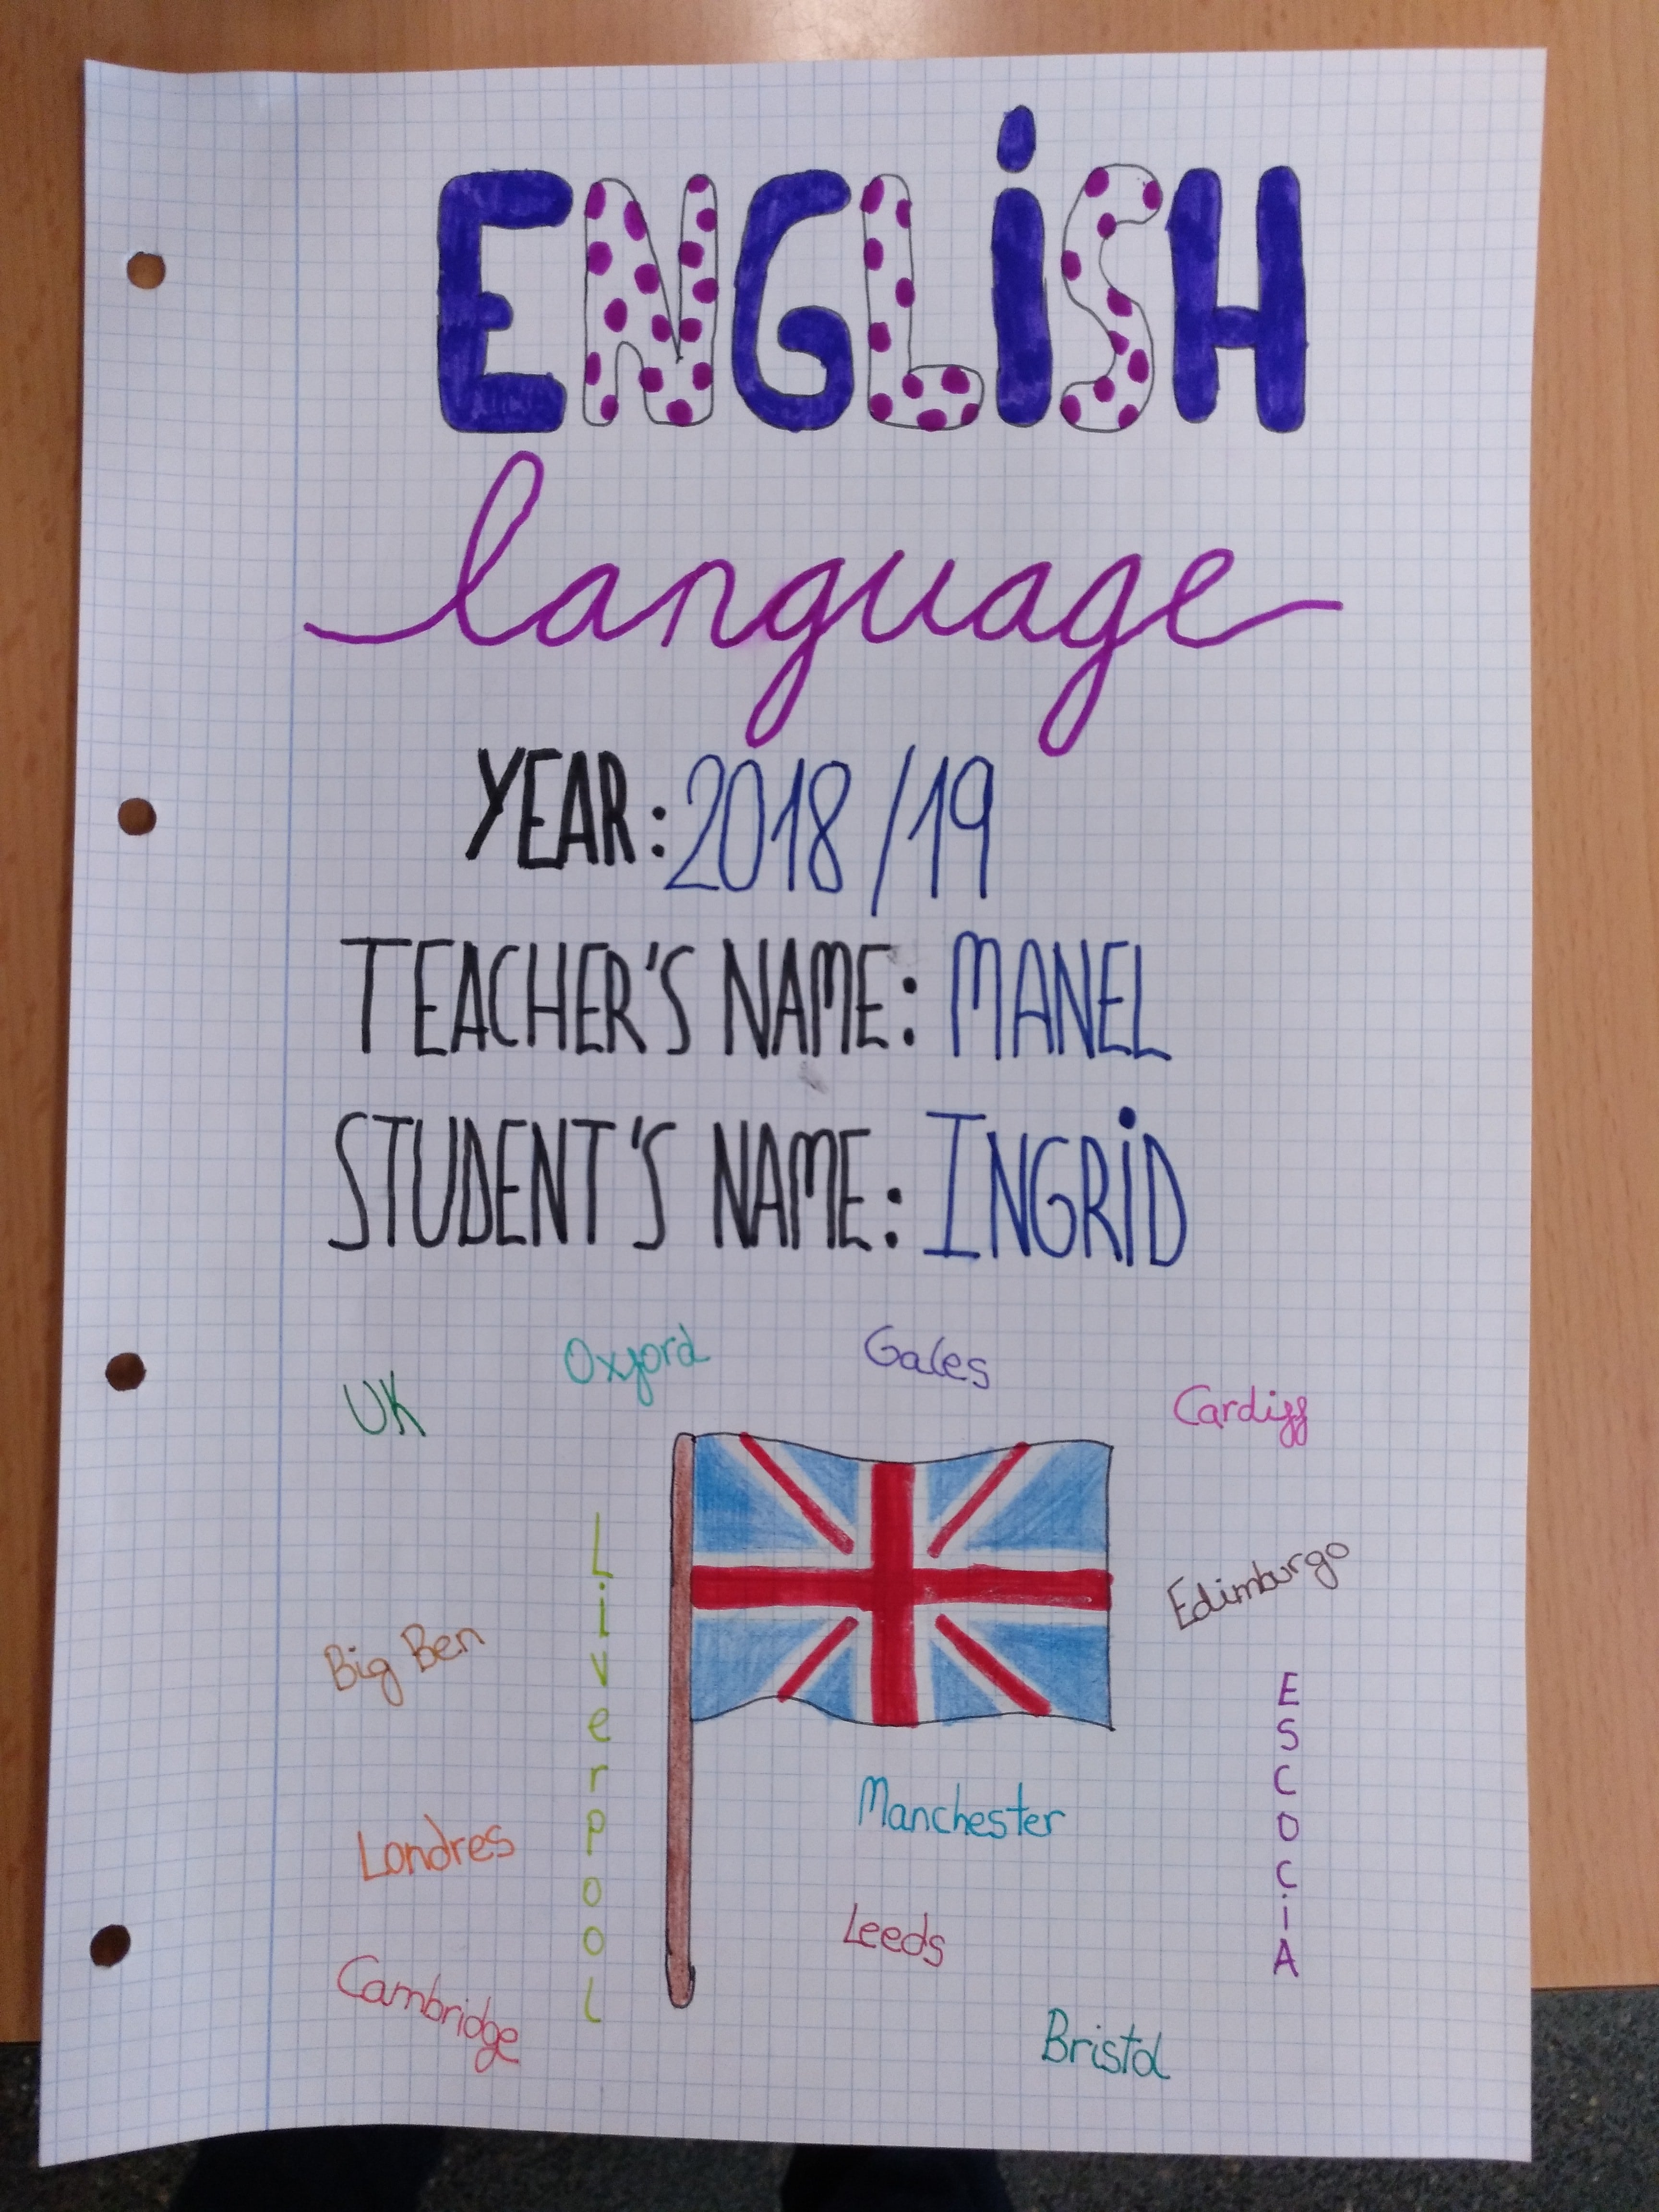 ENGLiSH
language
YEAR: 2018/19
TEACHER'S NAME: MANEL
STUDENT'S NAME: INGRiD
UK
Oxford
Gales
Cardiff
Liverpool
Edimburgo
Big Ben
ESCOCiA
Manchester
Londres
Leeds
Cambridge
Bristol